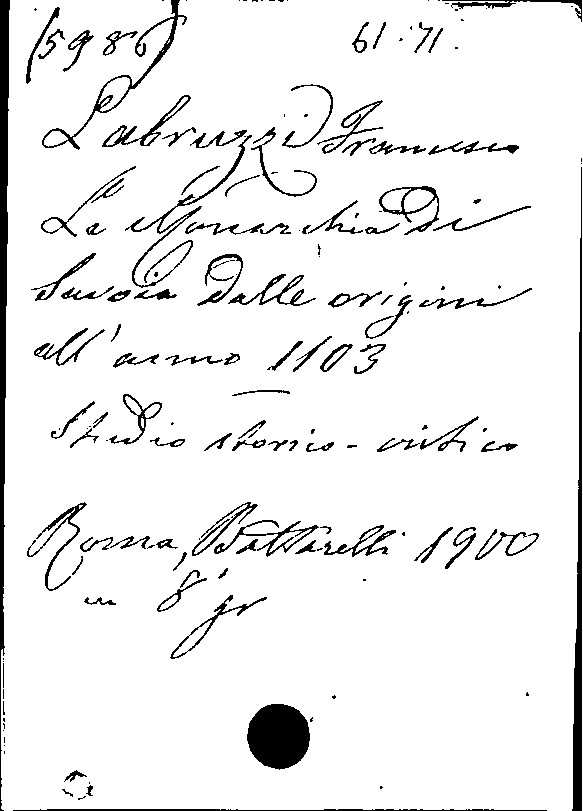 (5986) 61.71.
Labruzzi Francesco
La Monarchia di
Savoia dalle origini
all'anno 1103
Studio storico-critico
Roma, Battarelli 1900
in 8° gr